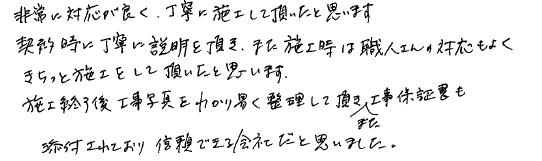 非常に対応が良く、丁寧に施工して頂いたと思います
契約時に丁寧に説明を頂き、また施工時は職人さんの対応もよく
きちっと施工をして頂いたと思います。
施工終了後工事写真をわかり易く整理して頂きまた工事保証書も
添付されており信頼できる会社だと思いました。